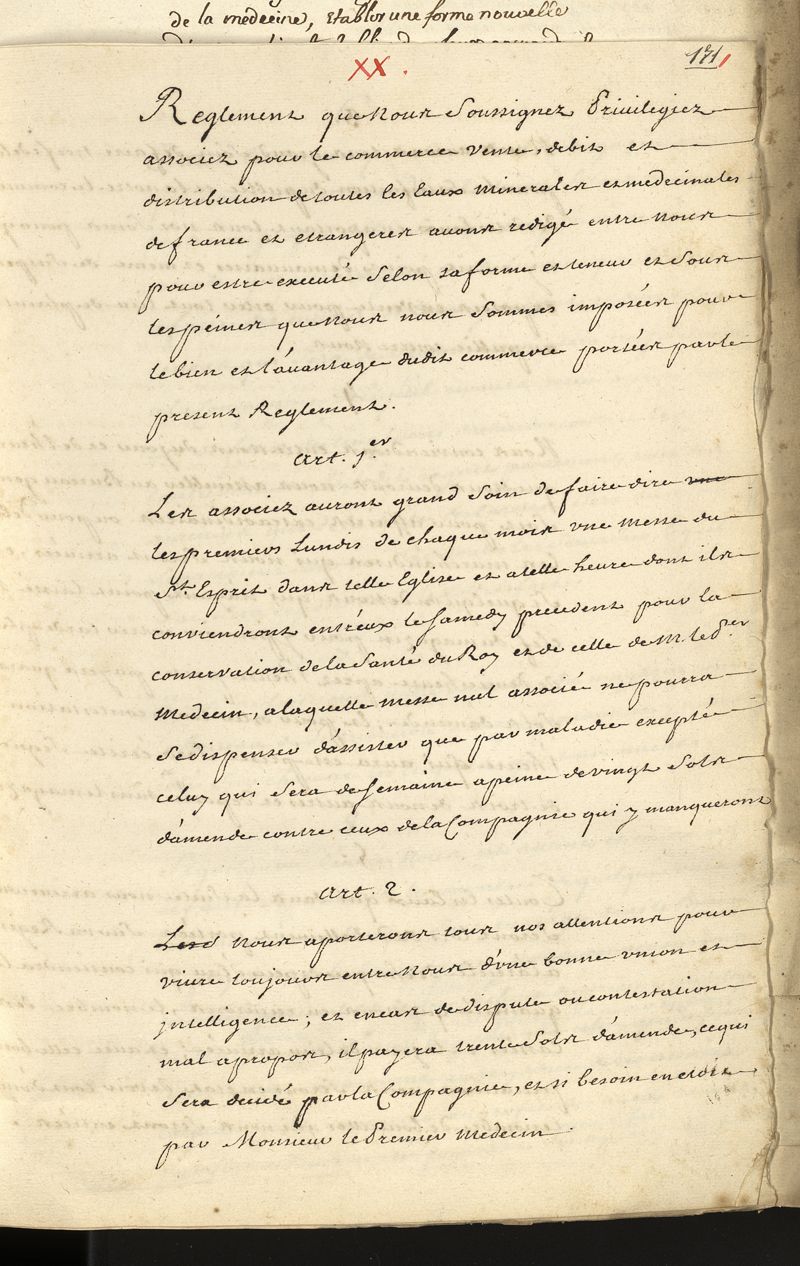 de la medecine, etablir une forme nouvelle
XX.
171
Reglement que Nous Soussignez Privilegiez
associez pour le commerce vente, debit et
distribution de toutes les Eaux Minerales et medecinales
de france et etrangeres avons redigé entre Nous
pour estre executé Selon sa forme et teneur et Sous
les peines que Nous nous Sommes imposées pour
le bien et l'avantage dudit commerce portées par le
present Reglement.
Art. 1.er
Les associez auront grand Soin de faire dire une
les premiers Lundis de chaque mois vne Messe du
St. Esprit dans telle Eglise et a telle heure dont ils
conviendront entr'eux le Samedy precedent pour la
conservation de la Santé du Roy et de celle de M. le P.er
Medecin, a laquelle messe nul associé ne pourra
Se dispenser d'assister que par maladie excepté
celuy qui Sera de Semaine a peine de vingt Sols
d'amende contre ceux de la Compagnie qui y manqueront
Art. 2.
Nous aporterons tous nos attentions pour
vivre toujours entre Nous d'vne bonne vnion et
jntelligence; et en cas de dispute ou contestation
mal apropos, il payera trente Sols d'amende, ce qui
Sera decidé par la Compagnie, et si besoin en etoit
par Monsieur le Premier Medecin.